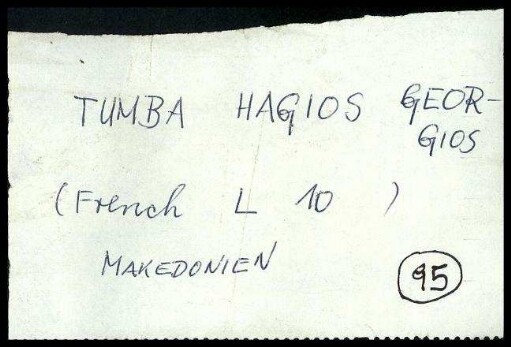 TUMBA HAGIOS GEOR-
GIOS
(French L 10 )
MAKEDONIEN
95